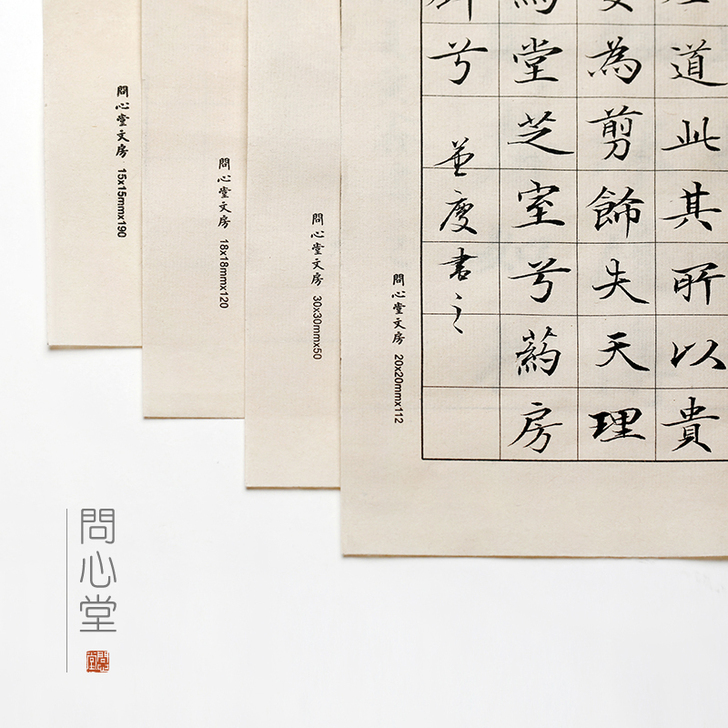 道此其所以貴
為剪飾失天理
堂芝室兮葯房
兮
書之
問心堂文房 20x20mmx112
問心堂文房 30x30mmx50
問心堂文房 18x18mmx120
問心堂文房 15x15mmx190
問心堂
問心堂